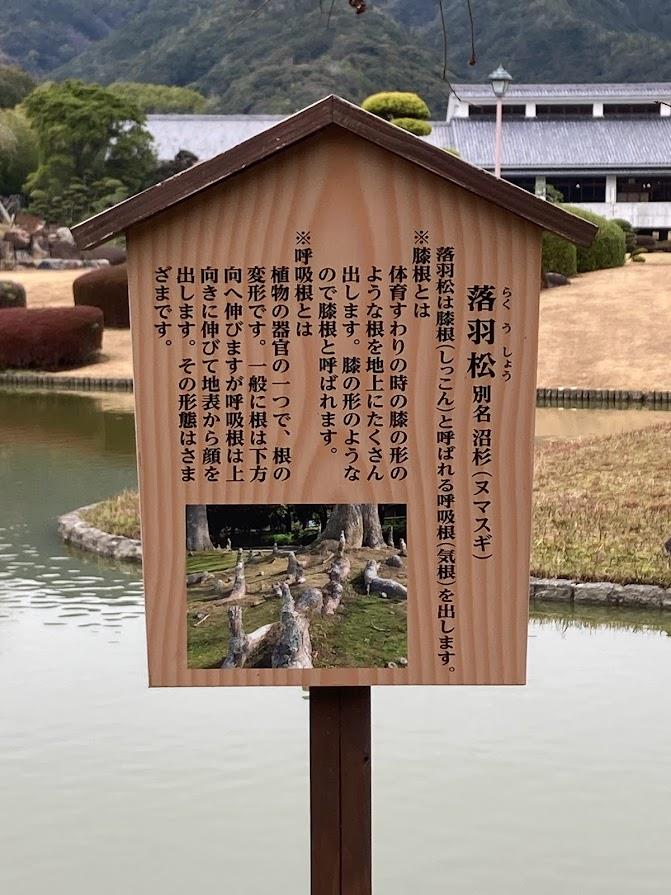 落羽松 別名 沼杉(ヌマスギ)
らく う しょう
落羽松は膝根(しっこん)と呼ばれる呼吸根(気根)を出します。
※膝根とは
体育すわりの時の膝の形の
ような根を地上にたくさん
出します。膝の形のような
ので膝根と呼ばれます。
※呼吸根とは
植物の器官の一つで、根の
変形です。一般に根は下方
向へ伸びますが呼吸根は上
向きに伸びて地表から顔を
出します。その形態はさま
ざまです。